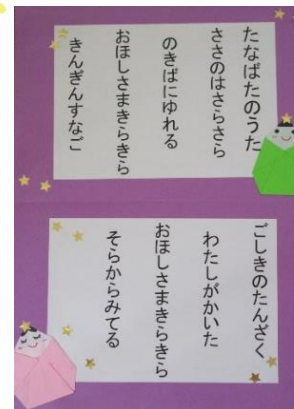 たなばたのうた
ささのはさらさら
のきばにゆれる
おほしさまきらきら
きんぎんすなご
ごしきのたんざく
わたしがかいた
おほしさまきらきら
そらからみてる